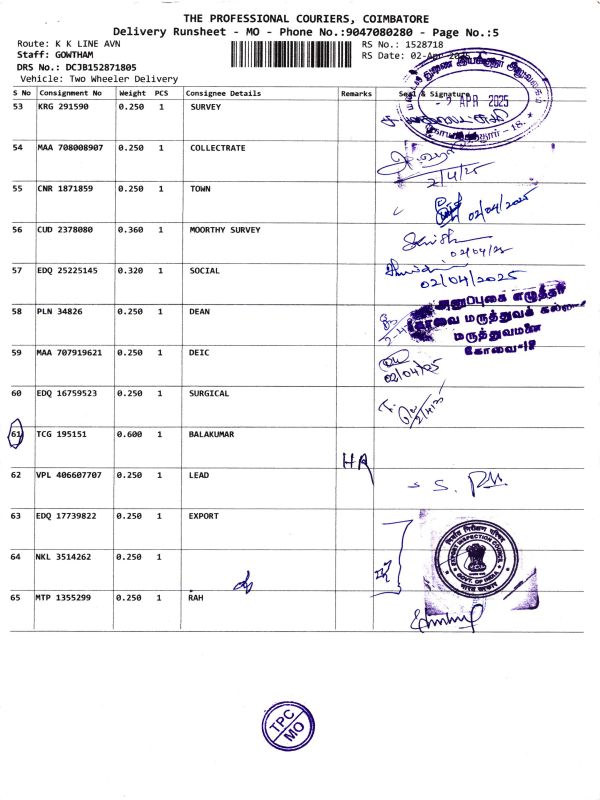 THE PROFESSIONAL COURIERS, COIMBATORE
Delivery Runsheet - MO - Phone No.:9047080280 - Page No.:5
Route: K K LINE AVN RS No.: 1528718
Staff: GOWTHAM RS Date: 02-Apr-2025
DRS No.: DCJB152871805
Vehicle: Two Wheeler Delivery
S No Consignment No Weight PCS Consignee Details Remarks Seal & Signature
- 2 APR 2025
53 KRG 291590 0.250 1 SURVEY
54 MAA 708008907 0.250 1 COLLECTRATE
2/4/25
55 CNR 1871859 0.250 1 TOWN
02/04/2025
56 CUD 2378080 0.360 1 MOORTHY SURVEY
02/04/25
57 EDQ 25225145 0.320 1 SOCIAL
02/04/2025
58 PLN 34826 0.250 1 DEAN
மருத்துவமனை
59 MAA 707919621 0.250 1 DEIC
02/04/25
60 EDQ 16759523 0.250 1 SURGICAL
2/4/25
61 TCG 195151 0.600 1 BALAKUMAR
HA
62 VPL 406607707 0.250 1 LEAD
63 EDQ 17739822 0.250 1 EXPORT
निर्यात निरीक्षण परिषद
EXPORT INSPECTION COUNCIL
GOVT. OF INDIA
भारत सरकार
64 NKL 3514262 0.250 1
65 MTP 1355299 0.250 1 RAH
TPC
MO